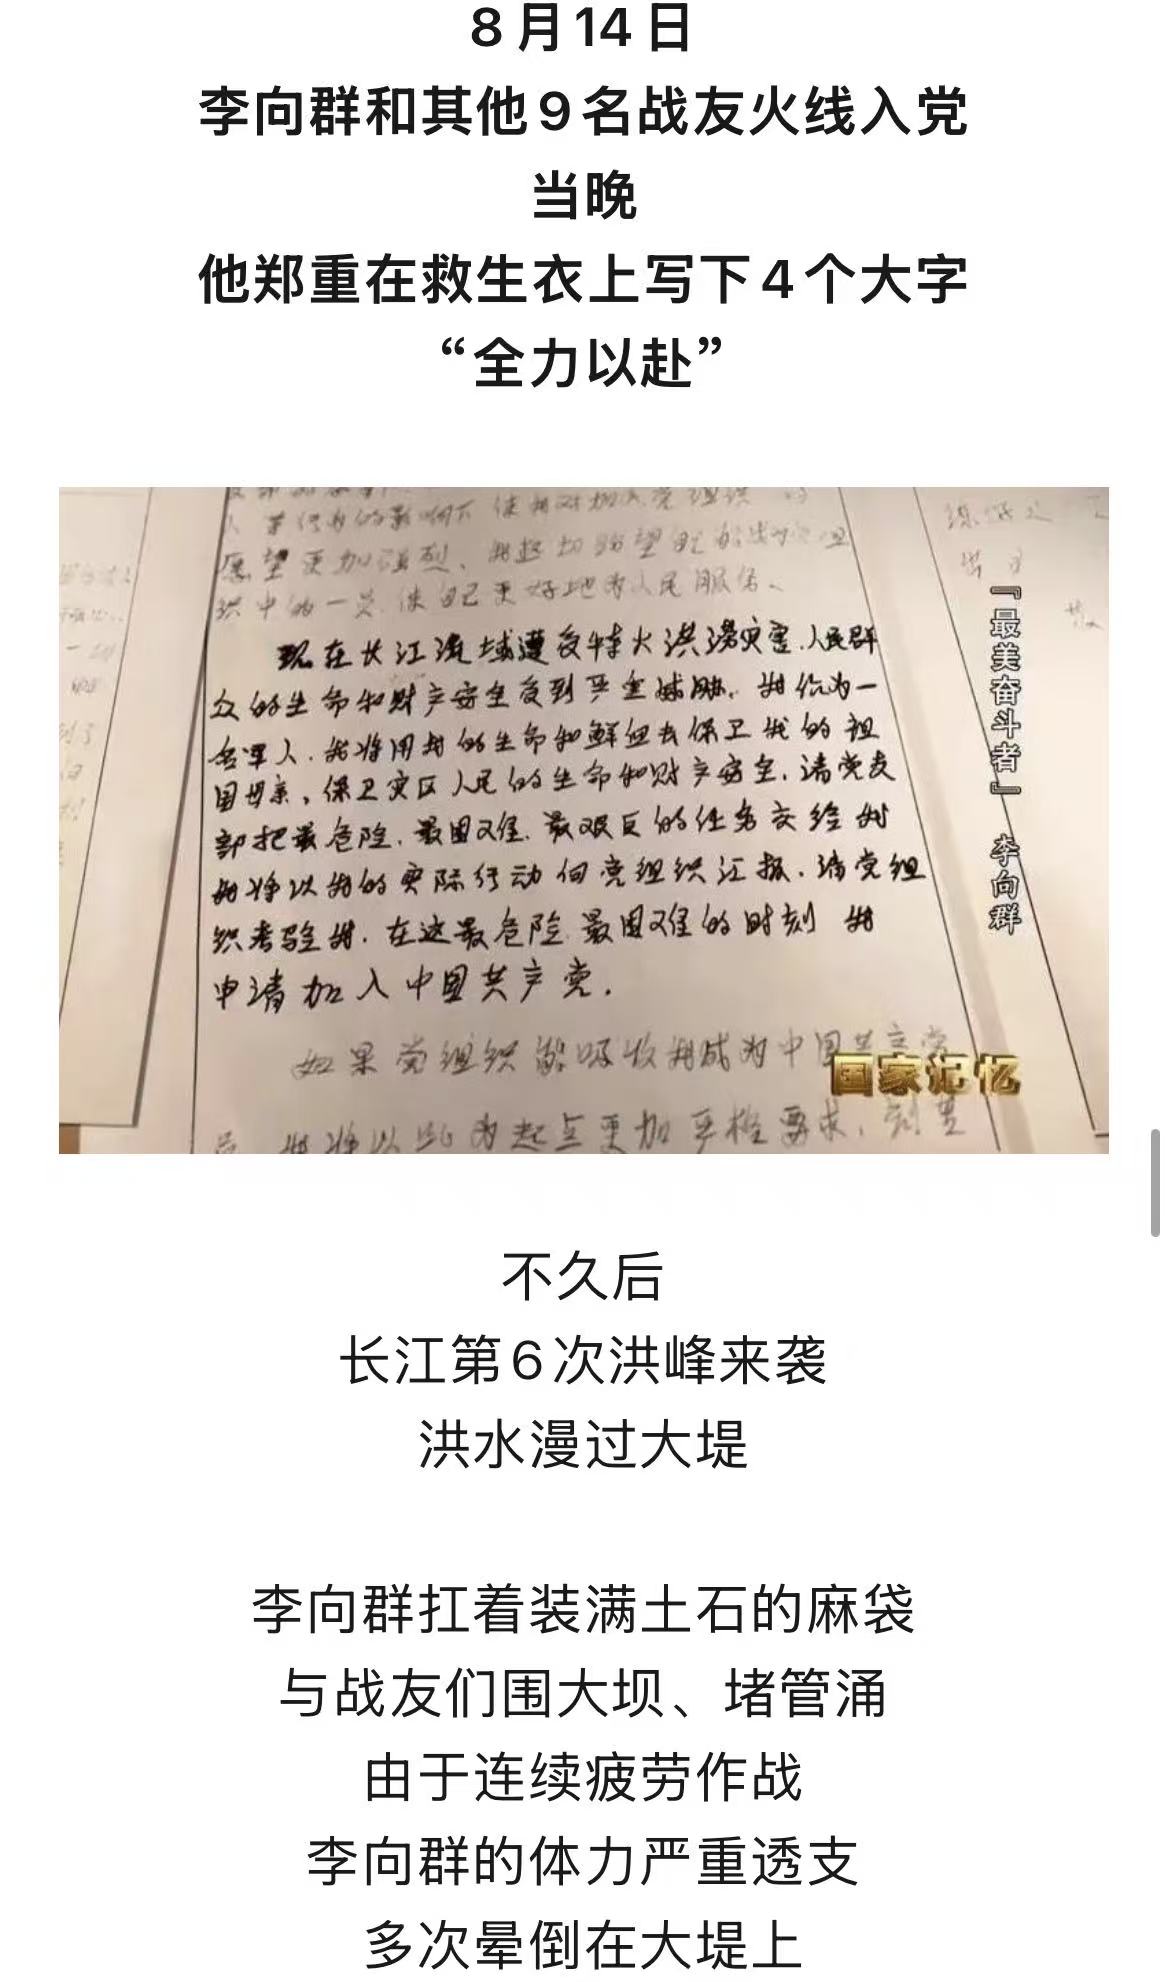 8月14日
李向群和其他9名战友火线入党
当晚
他郑重在救生衣上写下4个大字
“全力以赴”
愿望更加强烈、我迫切盼望能
织中的一员,使自己更好地为人民服务、
现在长江流域遭受特大洪涝灾害.人民群
众的生命和财产安全受到严重威胁.我作为一
名军人.我将用我的生命和鲜血去保卫我的祖
国母亲,保卫灾区人民的生命和财产安全.请党支
部把最危险.最困难.最艰巨的任务交给我
我将以我的实际行动向党组织汇报.请党组
织考验我.在这最危险.最困难的时刻 我
申请加入中国共产党.
如果党组织能吸收我成为中国共产党
员 我将以此为起点更加严格要求.刻苦
『最美奋斗者』 李向群
国家记忆
不久后
长江第6次洪峰来袭
洪水漫过大堤
李向群扛着装满土石的麻袋
与战友们围大坝、堵管涌
由于连续疲劳作战
李向群的体力严重透支
多次晕倒在大堤上